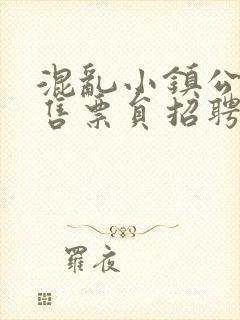 混亂小鎮公
售票員招聘
羅夜